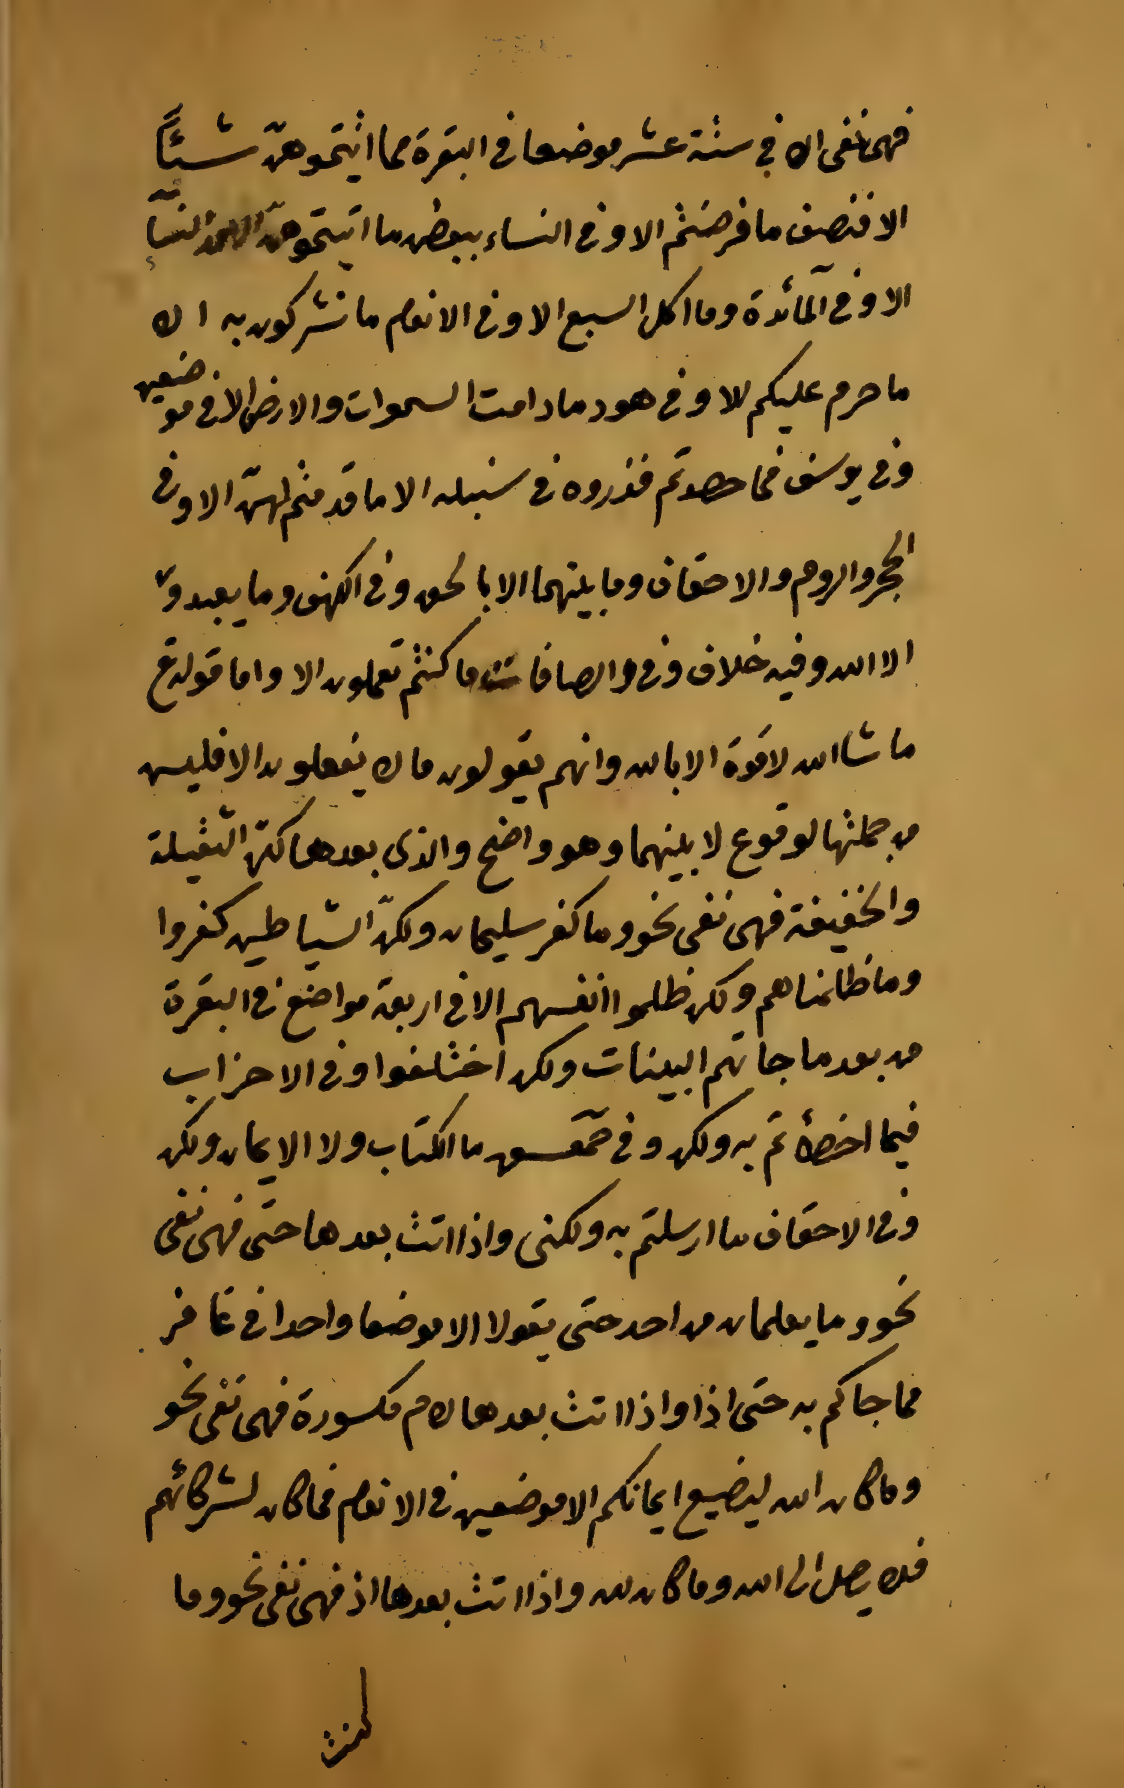 فهى نفى الا فى ستة عشر موضعا فى البقرة مما اتيتموهنّ شيئًا
الا فنصف ما فرضتم الا وفى النساء ببعض ما اتيتموهنّ النسآ
الا وفى المآئدة وما اكل السبع الا وفى الانعام ما تشركون به الا
ما حرم عليكم الا وفى هود ما دامت السموات والارض الا فى موضعين
وفى يوسف فما حصدتم فذروه فى سنبله الا ما قدمتم لهنّ الا وفى
الحجر والروم والاحقاف وما بينهما الا بالحق وفى الكهف وما يعبدون
الا الله وفيه خلاف وفى والصافات ما كنتم تعملون الا واما قوله تع
ما شا الله لا قوة الا بالله وانهم يقولون ما لا يفعلون الا فليس
من جملتها لوقوع لا بينهما وهو واضح والذى بعدها لكنّ الثقيلة
والخفيفة فهى نفى نحو وما كفر سليمان ولكنّ الشياطين كفروا
وما ظلمناهم ولكن ظلموا انفسهم الا فى اربعة مواضع فى البقرة
من بعد ما جاتهم البينات ولكن اختلفوا وفى الاحزاب
فيما اخطأتم به ولكن وفى حمٓعسق ما الكتاب ولا الايمان ولكن
وفى الاحقاف ما ارسلتم به ولكنى واذا اتت بعدها حتى فهى نفى
نحو وما يعلمان من احد حتى يقولا الا موضعا واحدا فى غافر
مما جاكم به حتى اذا واذا اتت بعدها لام مكسورة فهى نفى نحو
وما كان الله ليضيع ايمانكم الا موضعين فى الانعام فما كان لشركائهم
فلا يصل الى الله وما كان لله واذا اتت بعدها اذ فهى نفى نحو وما
كنت